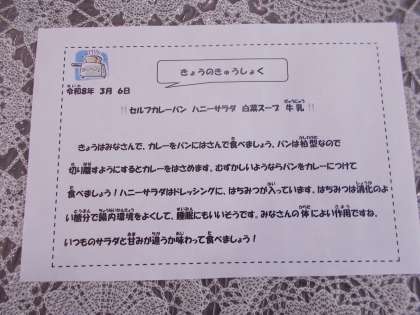 きょうのきゅうしょく
令和8年 3月 6日
!!セルフカレーパン ハニーサラダ 白菜スープ 牛乳!!
きょうはみなさんで、カレーをパンにはさんで食べましょう。パンは柏型なので
切り離すようにするとカレーをはさめます。むずかしいようならパンをカレーにつけて
食べましょう!ハニーサラダはドレッシングに、はちみつが入っています。はちみつは消化のよ
い糖分で腸内環境をよくして、睡眠にもいいそうです。みなさんの体によい作用ですね。
いつものサラダと甘みが違うか味わって食べましょう!